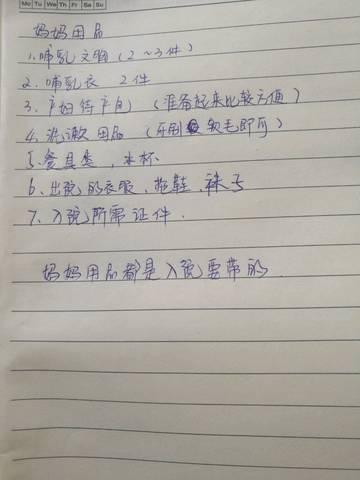 Mo Tu We Th Fr Sa Su
妈妈用品
1.哺乳文胸(2~3件)
2.哺乳衣 2件
3、产妇待产包 (准备起来比较方便)
4.洗漱用品 (牙刷软毛即可)
5、餐具类,水杯
6、出院的衣服,拖鞋,袜子
7、入院所需证件.
妈妈用品都是入院要带的.